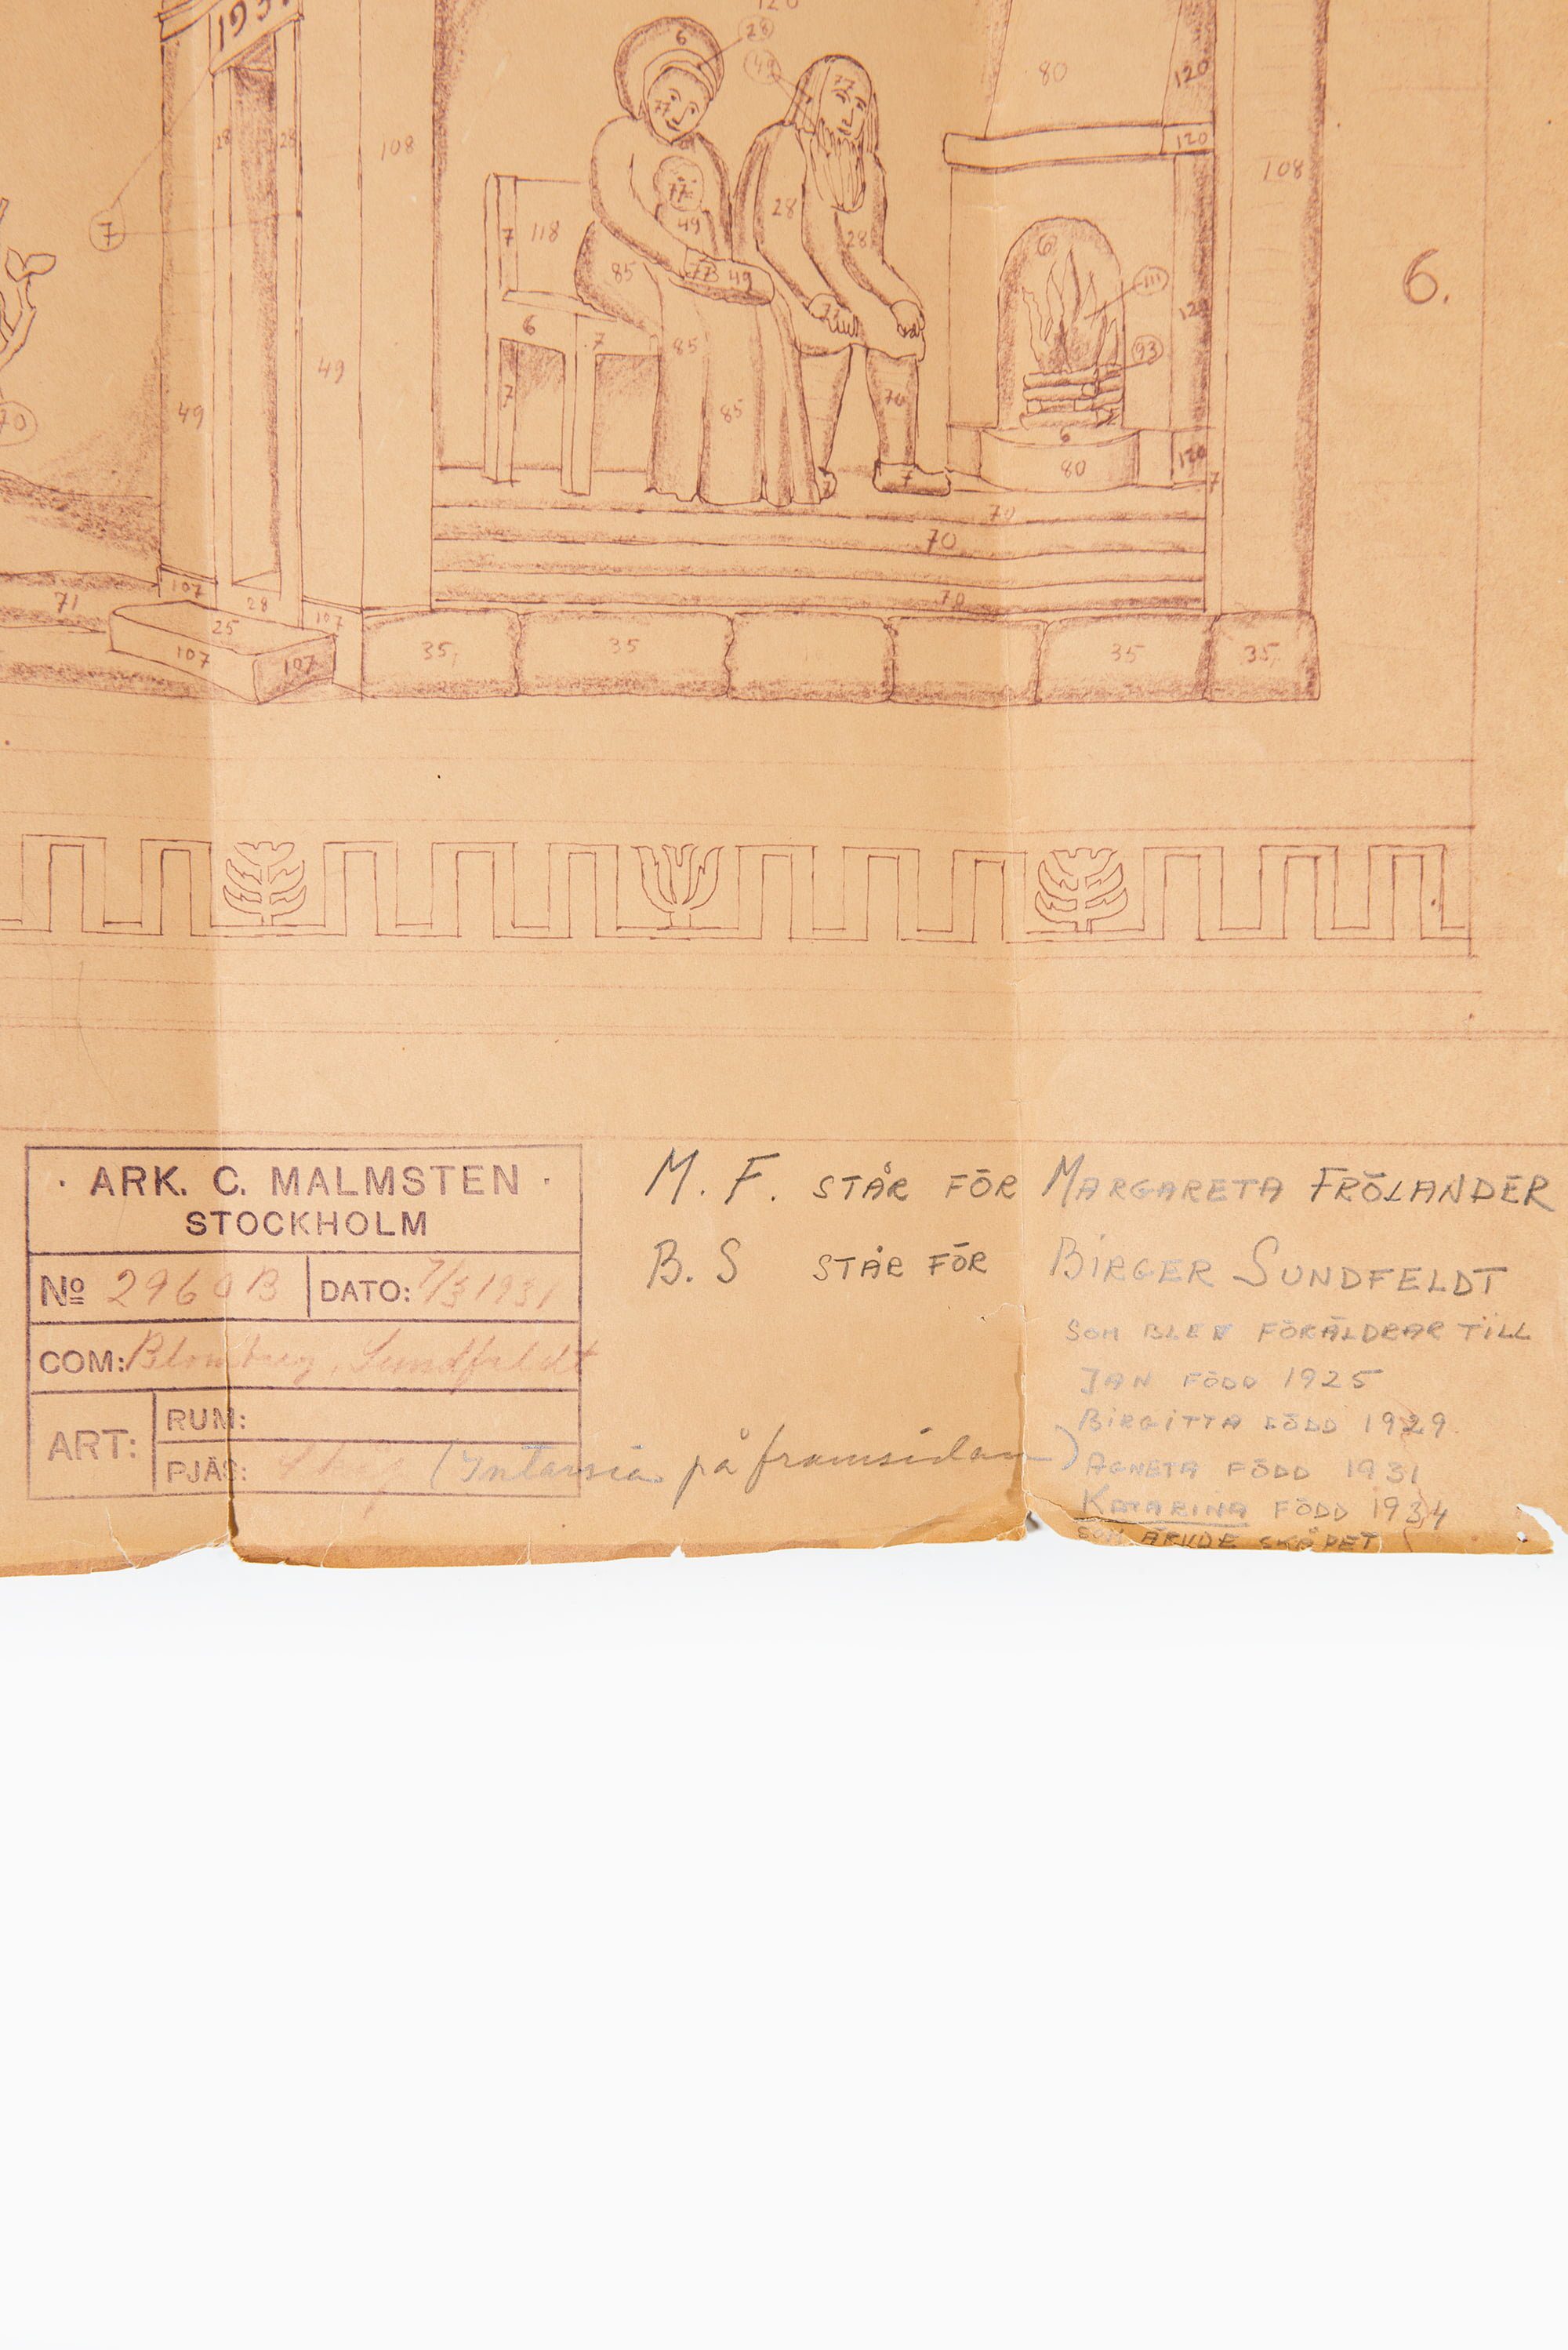 120
193
6
28
49
77
77
80
120
28
28
108
120
108
77
49
28
28
7
7
118
85
77
49
6
111
6.
120
6
7
85
93
49
7
49
85
70
70
6
80
120
7
7
70
70
107
71
28
107
70
25
107
107
35
35
35
35
· ARK. C. MALMSTEN ·
STOCKHOLM
No 2960B DATO: 7/3 1931
COM: Blomberg, Sundfeldt
ART: RUM:
PJÄS: (Intarsia på framsidan)
M. F. STÅR FÖR MARGARETA FRÖLANDER
B. S STÅR FÖR BIRGER SUNDFELDT
SOM BLEV FÖRÄLDRAR TILL
JAN FÖDD 1925
BIRGITTA FÖDD 1929
AGNETA FÖDD 1931
KATARINA FÖDD 1934
SOM ÄRVDE SKÅPET